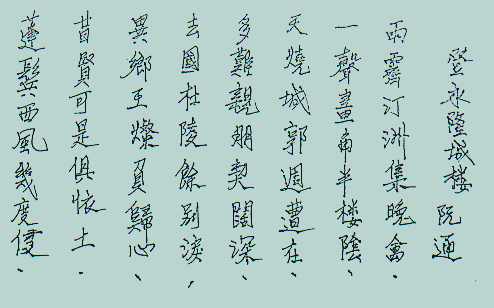 登永隆城楼 阮通
雨霽汀洲集晚禽、
一聲畫角半楼陰、
天燒城郭週遭在、
多難親朋契闊深、
去國杜陵餘別淚，
異鄉王燦負歸心、
昔賢可是俱懷土．
蓬鬓西風幾度侵、